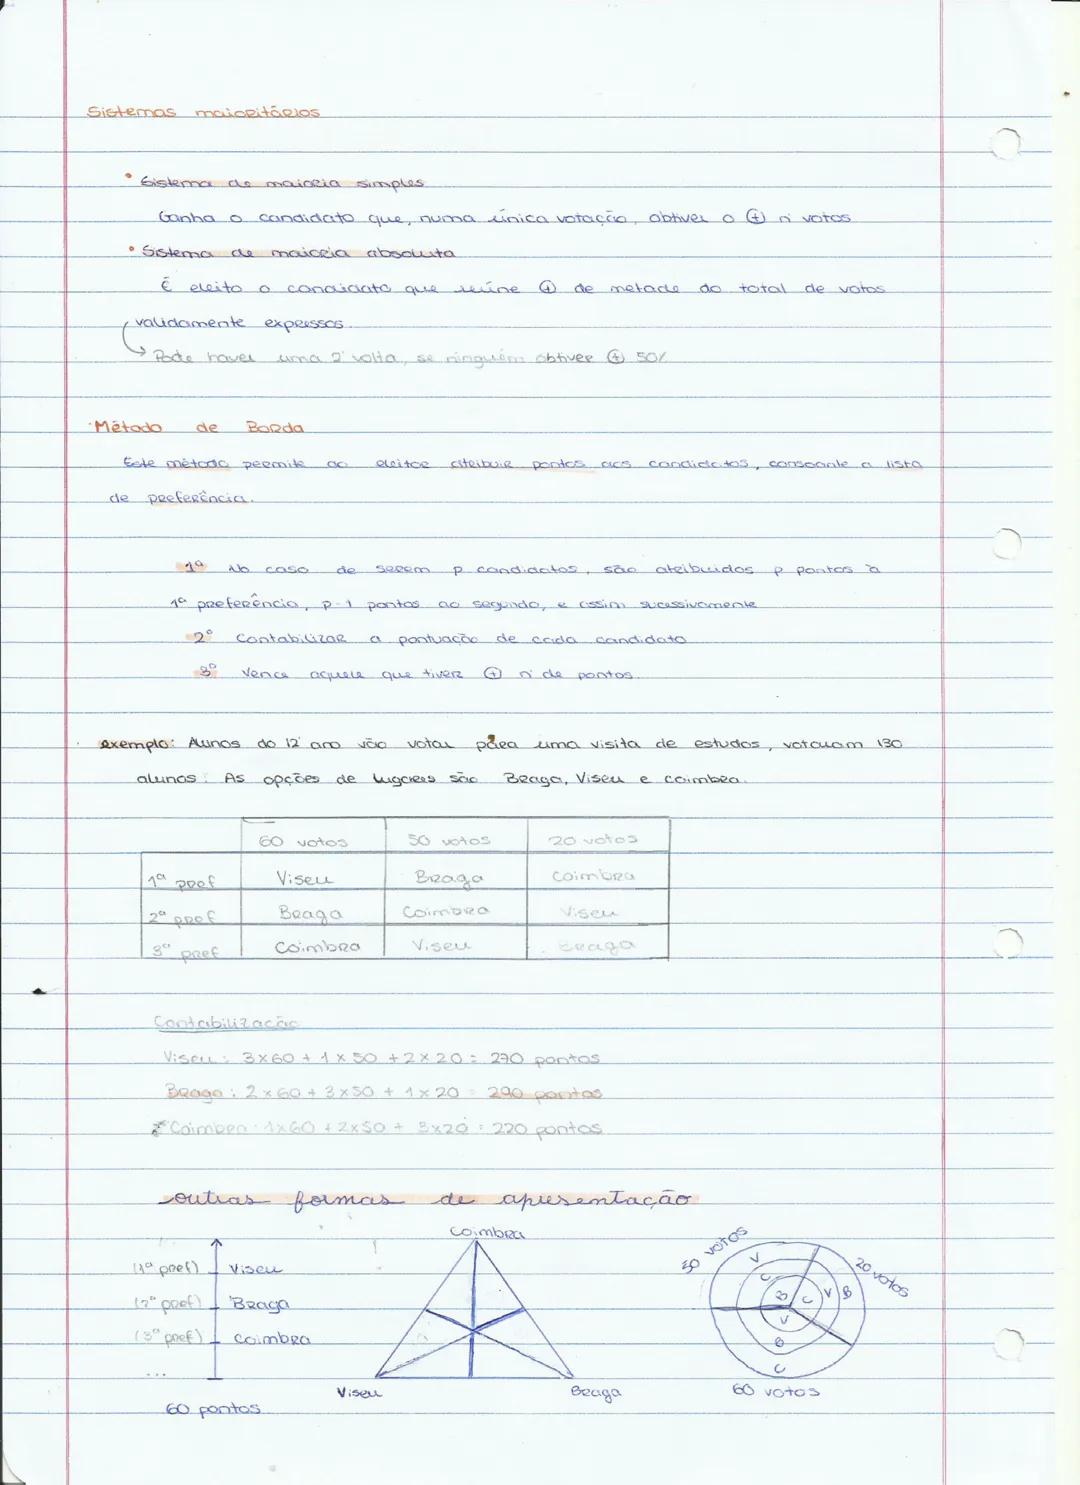 Sistemas maioritários
• Sistema de maioria simples
Ganha o candidato que, numa única votação, obtiver o ⊕ nº votos
• Sistema de maioria absoluta
É eleito o candidato que reúne ⊕ de metade do total de votos
validamente expressos.
↳ Pode haver uma 2ª volta, se ninguém obtiver ⊕ 50%
Método de Borda
Este método permite ao eleitor atribuir pontos aos candidatos, consoante a lista
de preferência.
1º No caso de serem p candidatos, são atribuidos p pontos à
1ª preferência, p-1 pontos ao segundo, e assim sucessivamente
2º Contabilizar a pontuação de cada candidato
3º Vence aquele que tiver ⊕ nº de pontos.
exemplo: Alunos do 12º ano vão votar para uma visita de estudos, votaram 130
alunos. As opções de lugares são Braga, Viseu e Coimbra.
60 votos 50 votos 20 votos
1ª pref Viseu Braga Coimbra
2ª pref Braga Coimbra Viseu
3ª pref Coimbra Viseu Braga
Contabilização
Viseu: 3×60 + 1×50 + 2×20 = 270 pontos
Braga: 2×60 + 3×50 + 1×20 = 290 pontos
Coimbra: 1×60 + 2×50 + 3×20 = 220 pontos
outras formas de apresentação
(1ª pref) Viseu
(2ª pref) Braga
(3ª pref) Coimbra
...
60 pontos
Coimbra
Viseu
Braga
50 votos
20 votos
V
C
B
C V B
V
B
C
60 votos